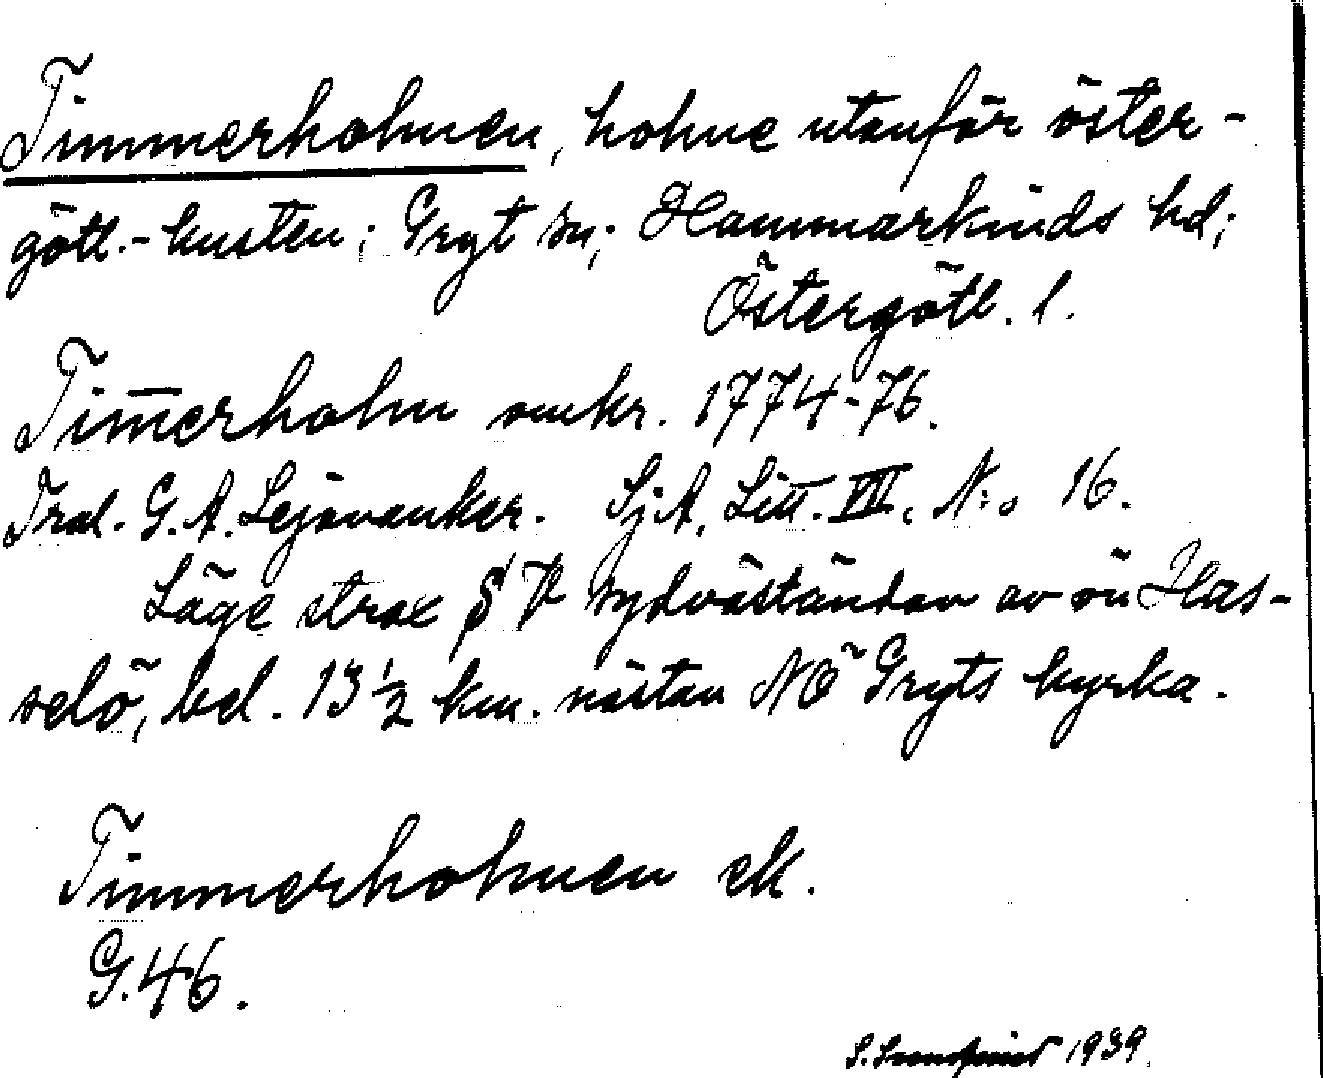 Timmerholmen, holme utanför öster-
götl.-kusten; Gryt sn; Hammarkinds hd;
Östergötl. l.
Tim̄erholm omkr. 1774-76.
Trol. G. A. Lejonanker. SjA, Litt. VII, N:o 16.
Läge strax § V sydväständan av ön Has-
selö, bel. 13 ½ km. nästan NÖ Gryts kyrka.
Timmerholmen ek.
G. 46.
1939